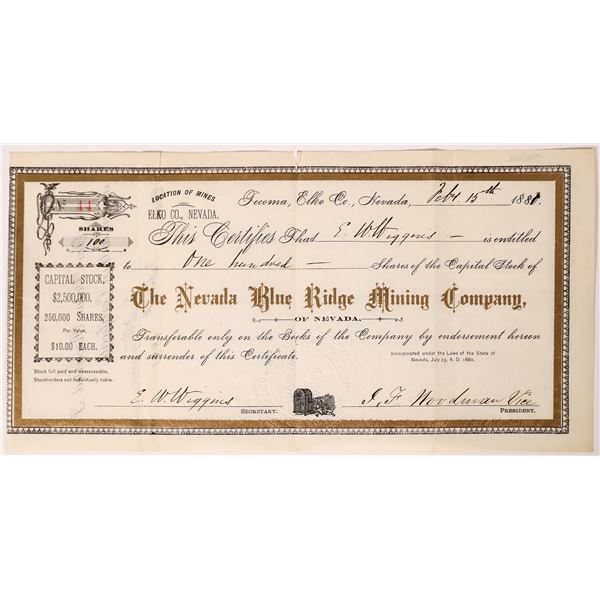 No. 44
SHARES
100
LOCATION OF MINES
ELKO CO., NEVADA.
Tecoma, Elko Co., Nevada, Feby 15th 1881.
This Certifies That E. W. Wiggins is entitled
to One hundred Shares of the Capital Stock of
The Nevada Blue Ridge Mining Company,
OF NEVADA.
Transferable only on the Books of the Company by endorsement hereon
and surrender of this Certificate.
Incorporated under the Laws of the State of
Nevada, July 23, A. D. 1880.
CAPITAL STOCK,
$2,500,000.
250,000 SHARES,
Par Value,
$10.00 EACH.
Stock full paid and unassessable,
Stockholders not individually liable.
E. W. Wiggins
SECRETARY.
J. F. Woodman Vice
PRESIDENT.